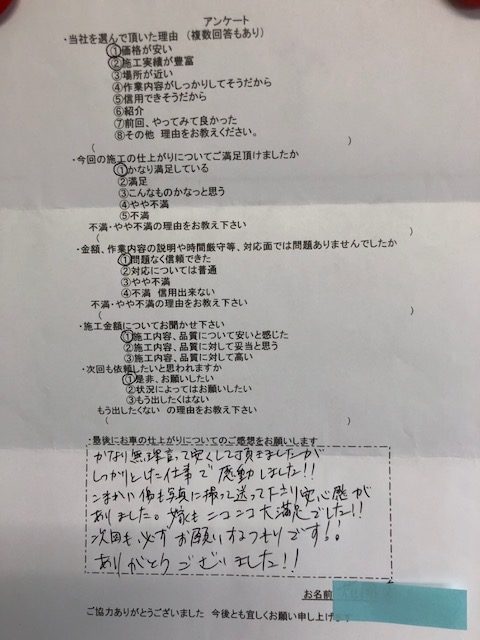 アンケート
・当社を選んで頂いた理由 （複数回答もあり）
①価格が安い
②施工実績が豊富
③場所が近い
④作業内容がしっかりしてそうだから
⑤信用できそうだから
⑥紹介
⑦前回、やってみて良かった
⑧その他 理由をお教えください。
( )
・今回の施工の仕上がりについてご満足頂けましたか
①かなり満足している
②満足
③こんなものかなっと思う
④やや不満
⑤不満
不満・やや不満の理由をお教え下さい
( )
・金額、作業内容の説明や時間厳守等、対応面では問題ありませんでしたか
①問題なく信頼できた
②対応については普通
③やや不満
④不満 信用出来ない
不満・やや不満の理由をお教え下さい
( )
・施工金額についてお聞かせ下さい
①施工内容、品質について安いと感じた
②施工内容、品質に対して妥当と思う
③施工内容、品質に対して高い
・次回も依頼したいと思われますか
①是非、お願いしたい
②状況によってはお願いしたい
③もう出したくはない
もう出したくない の理由をお教え下さい
( )
・最後にお車の仕上がりについてのご感想をお願いします
かなり無理言って安くして頂きましたが
しっかりとした仕事で感動しました!!
こまかい傷も写真に撮って送って下さり安心感が
ありました。嫁もニコニコ大満足でした!!
次回も必ずお願いするつもりです!!
ありがとうございました!!
お名前
ご協力ありがとうございました 今後とも宜しくお願い申し上げます